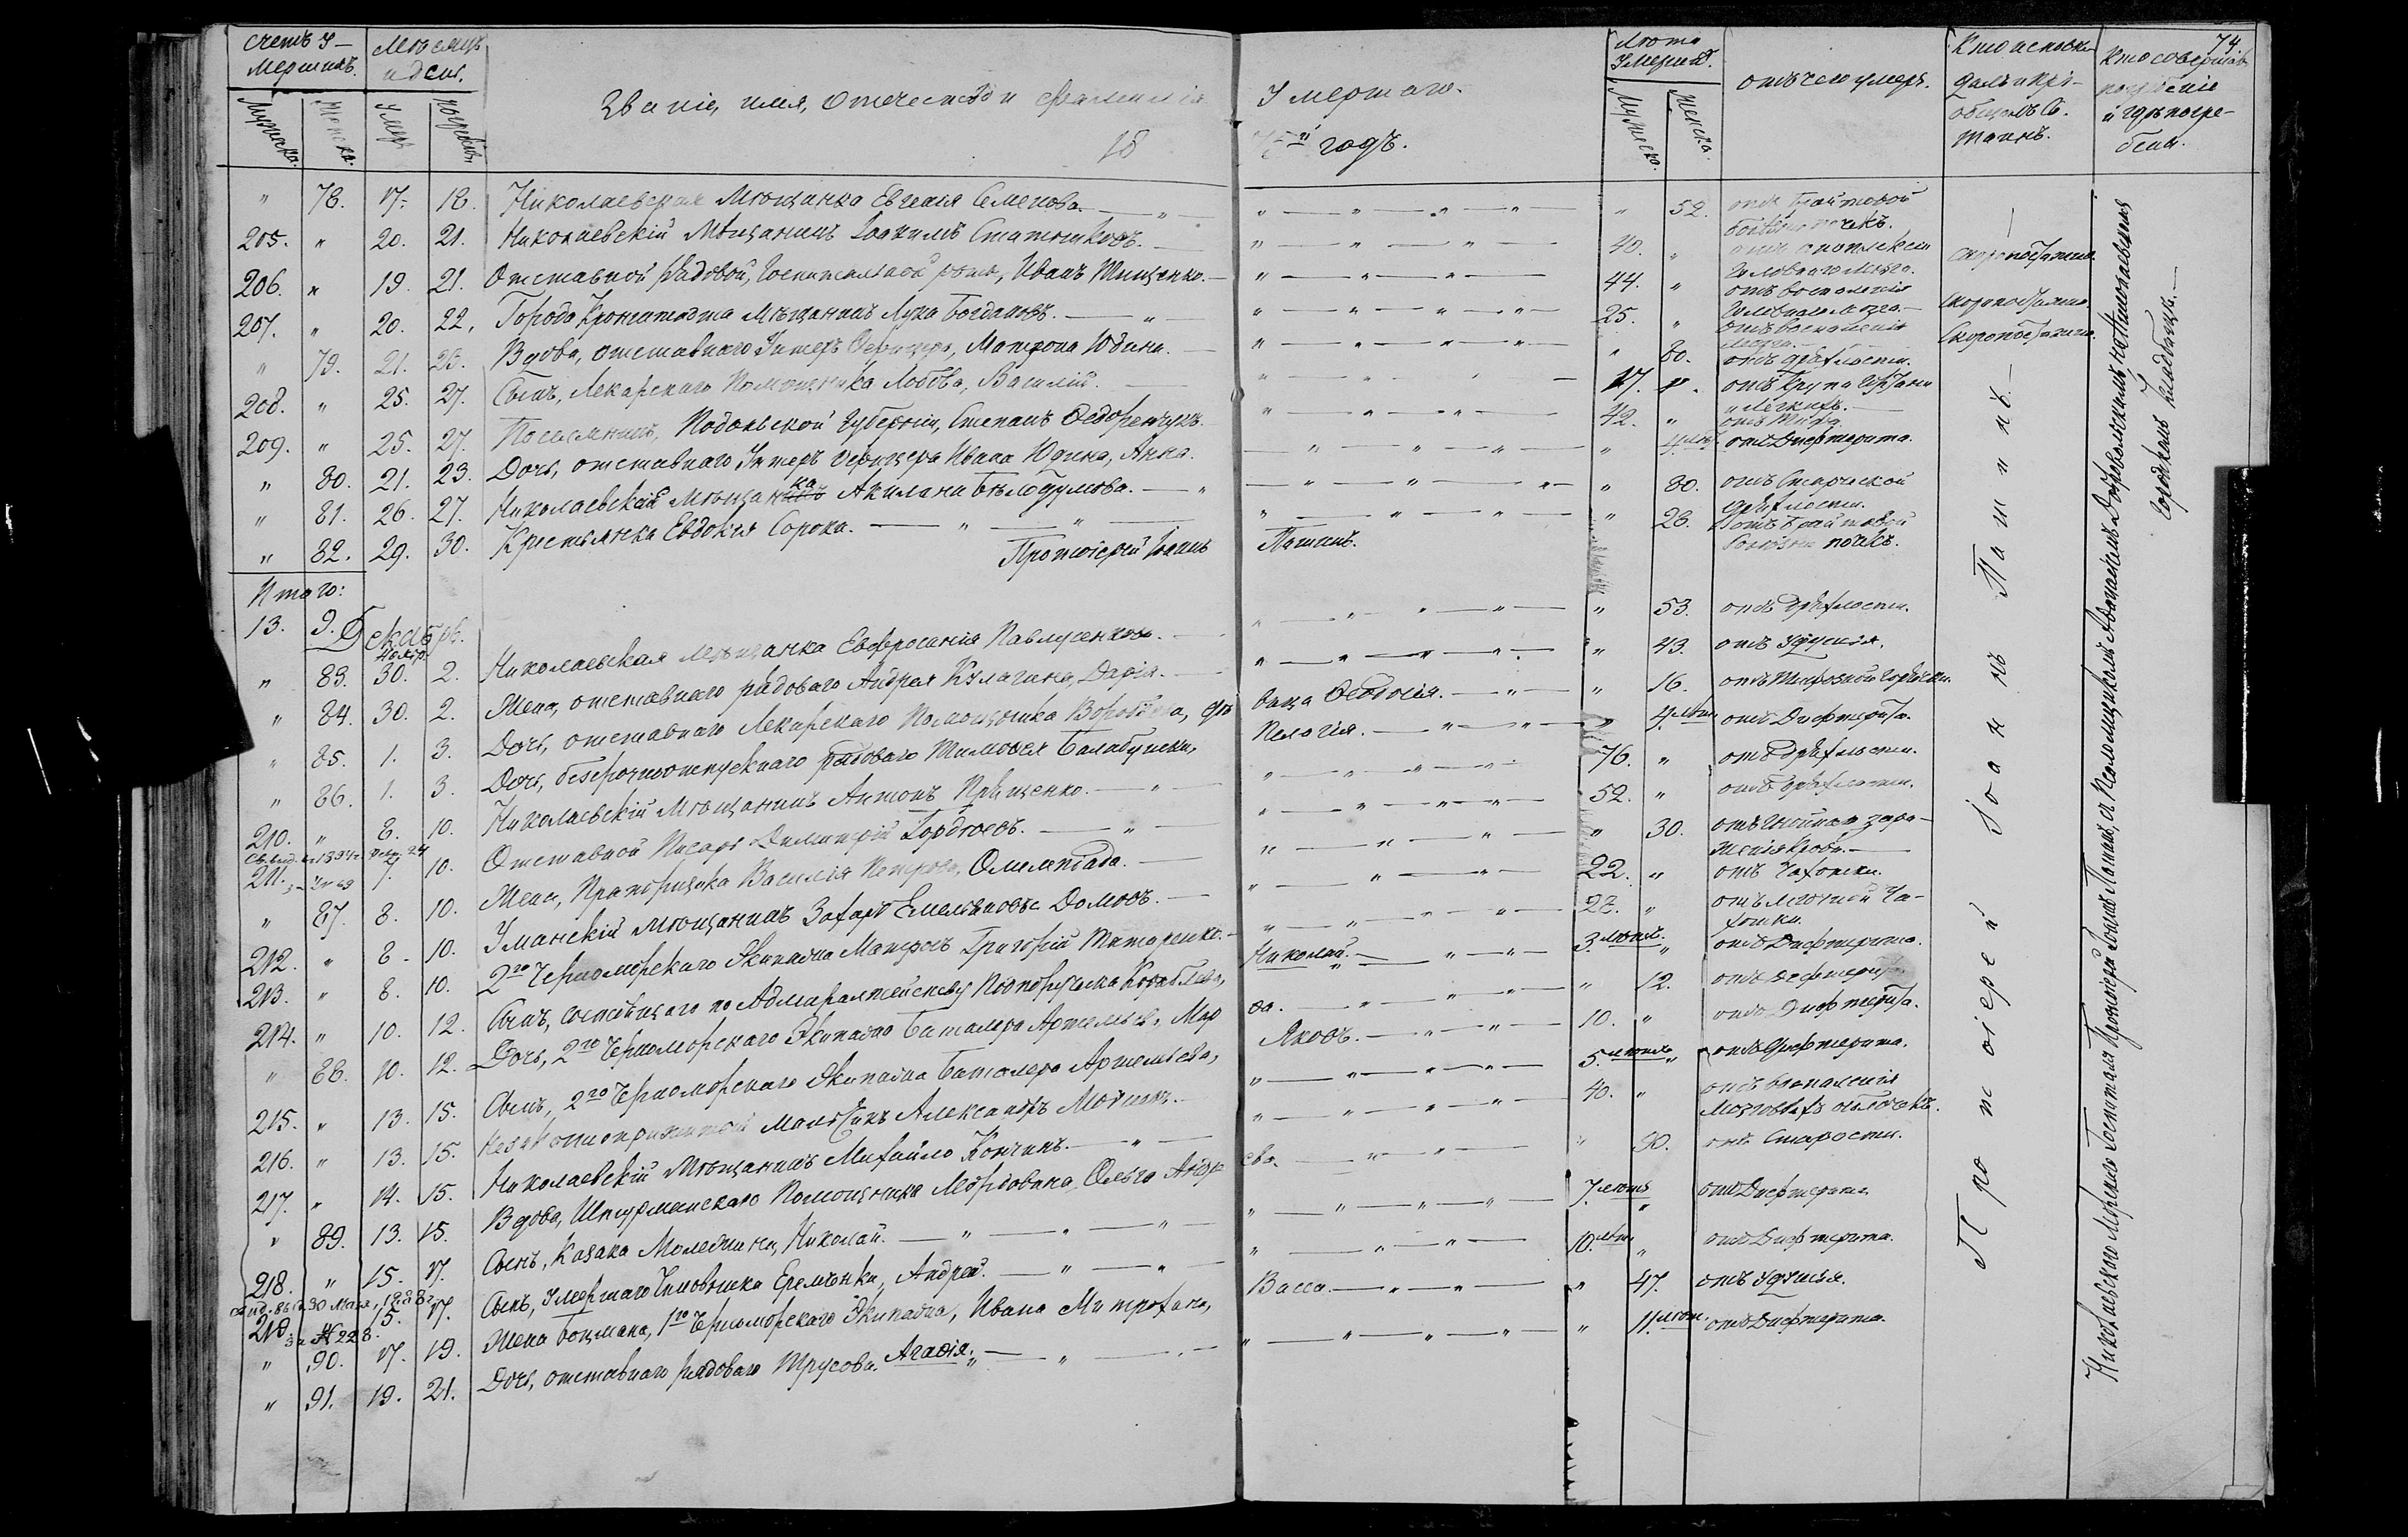 74.
Счетъ Умершихъ. Мѣсяцъ и день. Званіе, имя, отечество и фамилія Умершаго. Лѣта Умершаго. отъ чего умеръ. Кто исповѣдалъ и пріобщалъ Св. Таинъ. Кто совершалъ погребеніе и гдѣ погребенъ.
Мужеска. Женска. Умеръ погребенъ 18 годъ. Мужеска. Женска.
" 78. 17. 18. Николаевская Мѣщанка Евгенія Семенова. " 52. отъ Брайтовой болѣзни почекъ.
205. " 20. 21. Николаевскій Мѣщанинъ Іоакимъ Статниковъ. 40. " отъ апоплексіи Головнаго мозга. Скоропостижно.
206. " 19. 21. Отставной рядовой, Госпитальной роты, Иванъ Тищенко. 44. " отъ воспаленія Головнаго мозга. Скоропостижно.
207. " 20. 22. Города Кронштадта Мѣщанинъ Лука Богдановъ. 25. " отъ воспаленія мозга. Скоропостижно.
" 79. 21. 23. Вдова, отставнаго Унтеръ Офицера, Матрона Юдина. " 80. отъ дряхлости.
208. " 25. 27. Сынъ, Лекарскаго Помощника Лобова, Василій. 17. " отъ Крупа Гортани и легкихъ.
209. " 25. 27. Поселянинъ, Подольской Губерніи, Степанъ Ѳедоренчукъ. 42. " отъ Тифа.
" 80. 21. 23. Дочь, отставнаго Унтеръ Офицера Ивана Юдина, Анна. " 4. лѣт. отъ Дифтерита.
" 81. 26. 27. Николаевская Мѣщанка Акилина Бѣлодумова. " 80. отъ Старческой дряхлости.
" 82. 29. 30. Крестьянка Евдокія Сорока. " 28. отъ Брайтовой болѣзни почекъ.
Протоіерей Іоаннъ Патинъ.
Итого:
13. 9. Декабрь.
Ноябр.
" 83. 30. 2. Николаевская мѣщанка Евфросинія Павлусенкова. " 53. отъ дряхлости.
" 84. 30. 2. Жена, отставнаго рядоваго Андрея Кулагина, Дарія. " 43. отъ Удушья.
" 85. 1. 3. Дочь, отставнаго Лекарскаго Помощника Воробьева, дѣвица Ѳеодосія. " 16. отъ Тифозной горячки.
" 86. 1. 3. Дочь, безсрочноотпускнаго рядоваго Тимофея Балабушки, Пелагія. " 4. лѣт. отъ Дифтерита.
210. " 8. 10. Николаевскій Мѣщанинъ Антонъ Прищенко. 76. " отъ дряхлости.
211. 7. 10. Отставной Писарь Димитрій Гордѣевъ. 52. " отъ дряхлости.
" 87. 8. 10. Жена, Прапорщика Василія Петрова, Олимпіада. " 30. отъ Гнойнаго зараженія крови.
212. " 8. 10. Уманскій мѣщанинъ Захаръ Емельяновъ Домовъ. 22. " отъ Чахотки.
213. " 8. 10. 2го Черноморскаго Экипажа Матросъ Григорій Титаренко. 28. " отъ легочной Чахотки.
214. " 10. 12. Сынъ, состоящаго по Адмиралтейству Подпоручика Кораблева, Николай. 3. лѣтъ. " отъ Дифтерита.
" 88. 10. 12. Дочь, 2го Черноморскаго Экипажа Баталера Артемьева, Марѳа. " 12. отъ Дифтерита.
215. " 13. 15. Сынъ, 2го Черноморскаго Экипажа Баталера Артемьева, Яковъ. 10. " отъ Дифтерита.
216. " 13. 15. Незаконноприжитой мальчикъ Александръ 5. лѣтъ " отъ Дифтерита.
217. " 14. 15. Николаевскій Мѣщанинъ Михайло 40. " отъ воспаленія мозговыхъ оболочекъ.
" 89. 13. 15. Вдова, Штурманскаго Помощника Мордовина, Ольга Андреева. " 90. отъ Старости.
218. " 15. 17. Сынъ, Казака Молеткина, Николай. 7. лѣтъ " отъ Дифтерита.
219. 15. 17. Сынъ, Умершаго Чиновника Еремѣнки, Андрей. 10. лѣт. " отъ Дифтерита.
" 90. 17. 19. Жена Боцмана, 1го Черноморскаго Экипажа, Ивана Митрофана, Васса. " 47. отъ Удушья.
" 91. 19. 21. Дочь, отставнаго рядоваго Трусова. Агафія. " 11. лѣт. отъ Дифтерита.
Протоіерей Іоаннъ Патинъ.
Николаевскаго Морскаго Госпиталя Протоіерей Іоаннъ Патинъ, съ Псаломщикомъ Аѳанасіемъ Добровольскимъ, на Николаевскомъ Городскомъ Кладбищѣ.